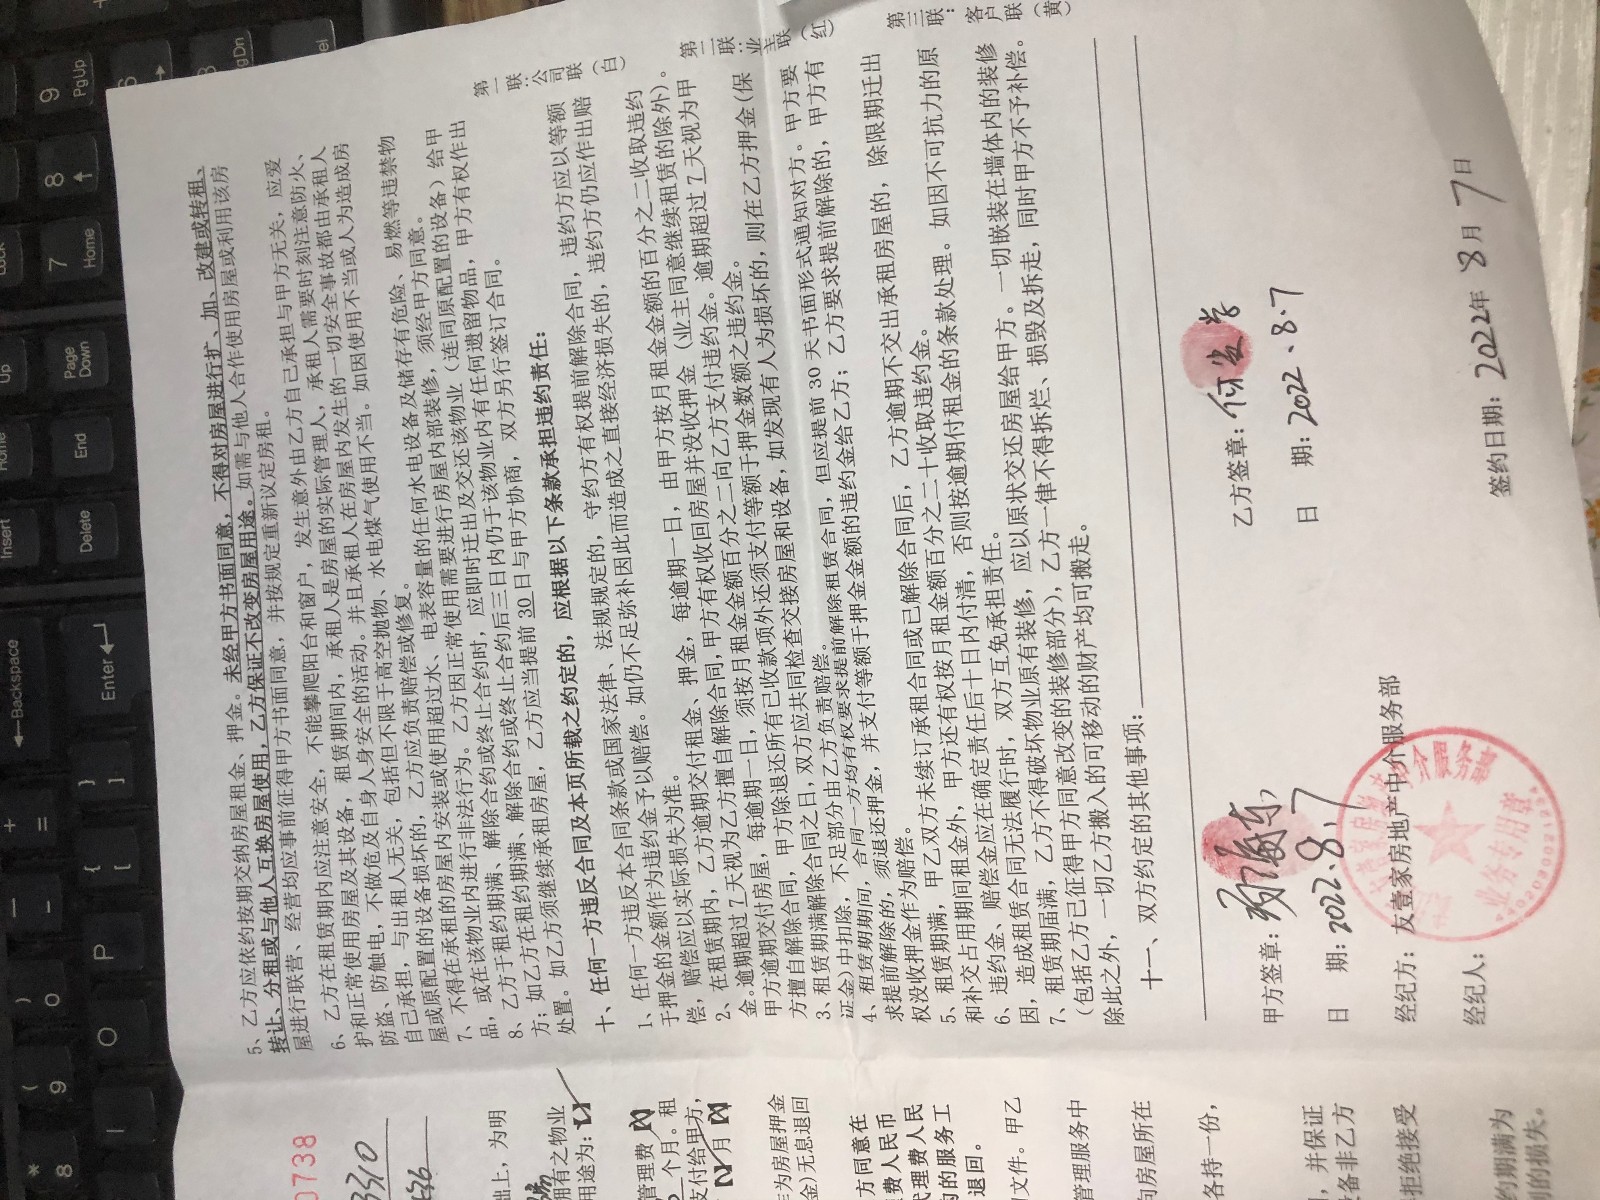 5、乙方应依约按期交纳房屋租金、押金。未经甲方书面同意，不得对房屋进行扩、加、改建或转租、
转让、分租或与他人互换房屋使用，乙方保证不改变房屋用途。如需与他人合作使用房屋或利用该房
屋进行联营、经营均应事前征得甲方书面同意，并按规定重新议定房租。
6、乙方在租赁期内应注意安全，不能攀爬阳台和窗户，发生意外由乙方自己承担与甲方无关，应爱
护和正常使用房屋及其设备，租赁期间内，承租人是房屋的实际管理人，承租人需要时刻注意防火、
防盗、防触电，不做危及自身人身安全的活动。并且承租人在房屋内发生的一切安全事故都由承租人
自己承担，与出租人无关，包括但不限于高空抛物、水电煤气使用不当。如因使用不当或人为造成房
屋或原配置的设备损坏的，乙方应负责赔偿或修复。
7、不得在承租的房屋内安装或使用超过水、电表容量的任何水电设备及储存有危险、易燃等违禁物
品，或在该物业内进行非法行为。乙方因正常使用需要进行房屋内部装修，须经甲方同意。
8、乙方于租约期满、解除合约或终止合约时，应即时迁出及交还该物业（连同原配置的设备）给甲
方；如乙方在租约期满、解除合约或终止合约后三日内仍于该物业内有任何遗留物品，甲方有权作出
处置。如乙方须继续承租房屋，乙方应当提前30日与甲方协商，双方另行签订合同。
十、任何一方违反合同及本页所载之约定的，应根据以下条款承担违约责任：
1、任何一方违反本合同条款或国家法律、法规规定的，守约方有权提前解除合同，违约方应以等额
于押金的金额作为违约金予以赔偿。如仍不足弥补因此而造成之直接经济损失的，违约方仍应作出赔
偿，赔偿应以实际损失为准。
2、在租赁期内，乙方逾期交付租金、押金，每逾期一日，由甲方按月租金金额的百分之二收取违约
金。逾期超过7天视为乙方擅自解除合同，甲方有权收回房屋并没收押金（业主同意继续租赁的除外）。
甲方逾期交付房屋，每逾期一日，须按月租金金额百分之二向乙方支付违约金。逾期超过7天视为甲
方擅自解除合同，甲方除退还所有已收款项外还须支付等额于押金数额之违约金。
3、租赁期满解除合同之日，双方应共同检查交接房屋和设备，如发现有人为损坏的，则在乙方押金（保
证金）中扣除，不足部分由乙方负责赔偿。
4、租赁期间，合同一方均有权要求提前解除租赁合同，但应提前30天书面形式通知对方。甲方要
求提前解除的，须退还押金，并支付等额于押金金额的违约金给乙方；乙方要求提前解除的，甲方有
权没收押金作为赔偿。
5、租赁期满，甲乙双方未续订承租合同或已解除合同后，乙方逾期不交出承租房屋的，除限期迁出
和补交占用期间租金外，甲方还有权按月租金额百分之二十收取违约金。
6、违约金、赔偿金应在确定责任后十日内付清，否则按逾期付租金的条款处理。如因不可抗力的原
因，造成租赁合同无法履行时，双方互免承担责任。
7、租赁期届满，乙方不得破坏物业原有装修，应以原状交还房屋给甲方。一切嵌装在墙体内的装修
（包括乙方已征得甲方同意改变的装修部分），乙方一律不得拆烂、损毁及拆走，同时甲方不予补偿。
除此之外，一切乙方搬入的可移动的财产均可搬走。
十一、双方约定的其他事项：
甲方签章：
乙方签章：
日 期：2022.8.7
日 期：2022.8.7
经纪方：友壹家房地产中介服务部
经纪人：
签约日期：2022年8月7日
业务专用章
第一联：公司联（白）
第二联：业主联（红）
第三联：客户联（黄）
0738
3510
础上，为明
拥有之物业
用途为：
管理费
个月。租
支付给甲方，
月
作为房屋押金
金）无息退回
方同意在
费人民币
代理费人民
的服务工
退回。
文件。甲乙
管理服务中
向房屋所在
各持一份，
，并保证
备非乙方
拒绝接受
约期满为
的损失。
Backspace
Enter
Insert
Delete
Home
End
Up
Page Down
7 Home
8
9 PgUp
* 8
( 9
) 0
I
O
P
{ [
} ]
+ =